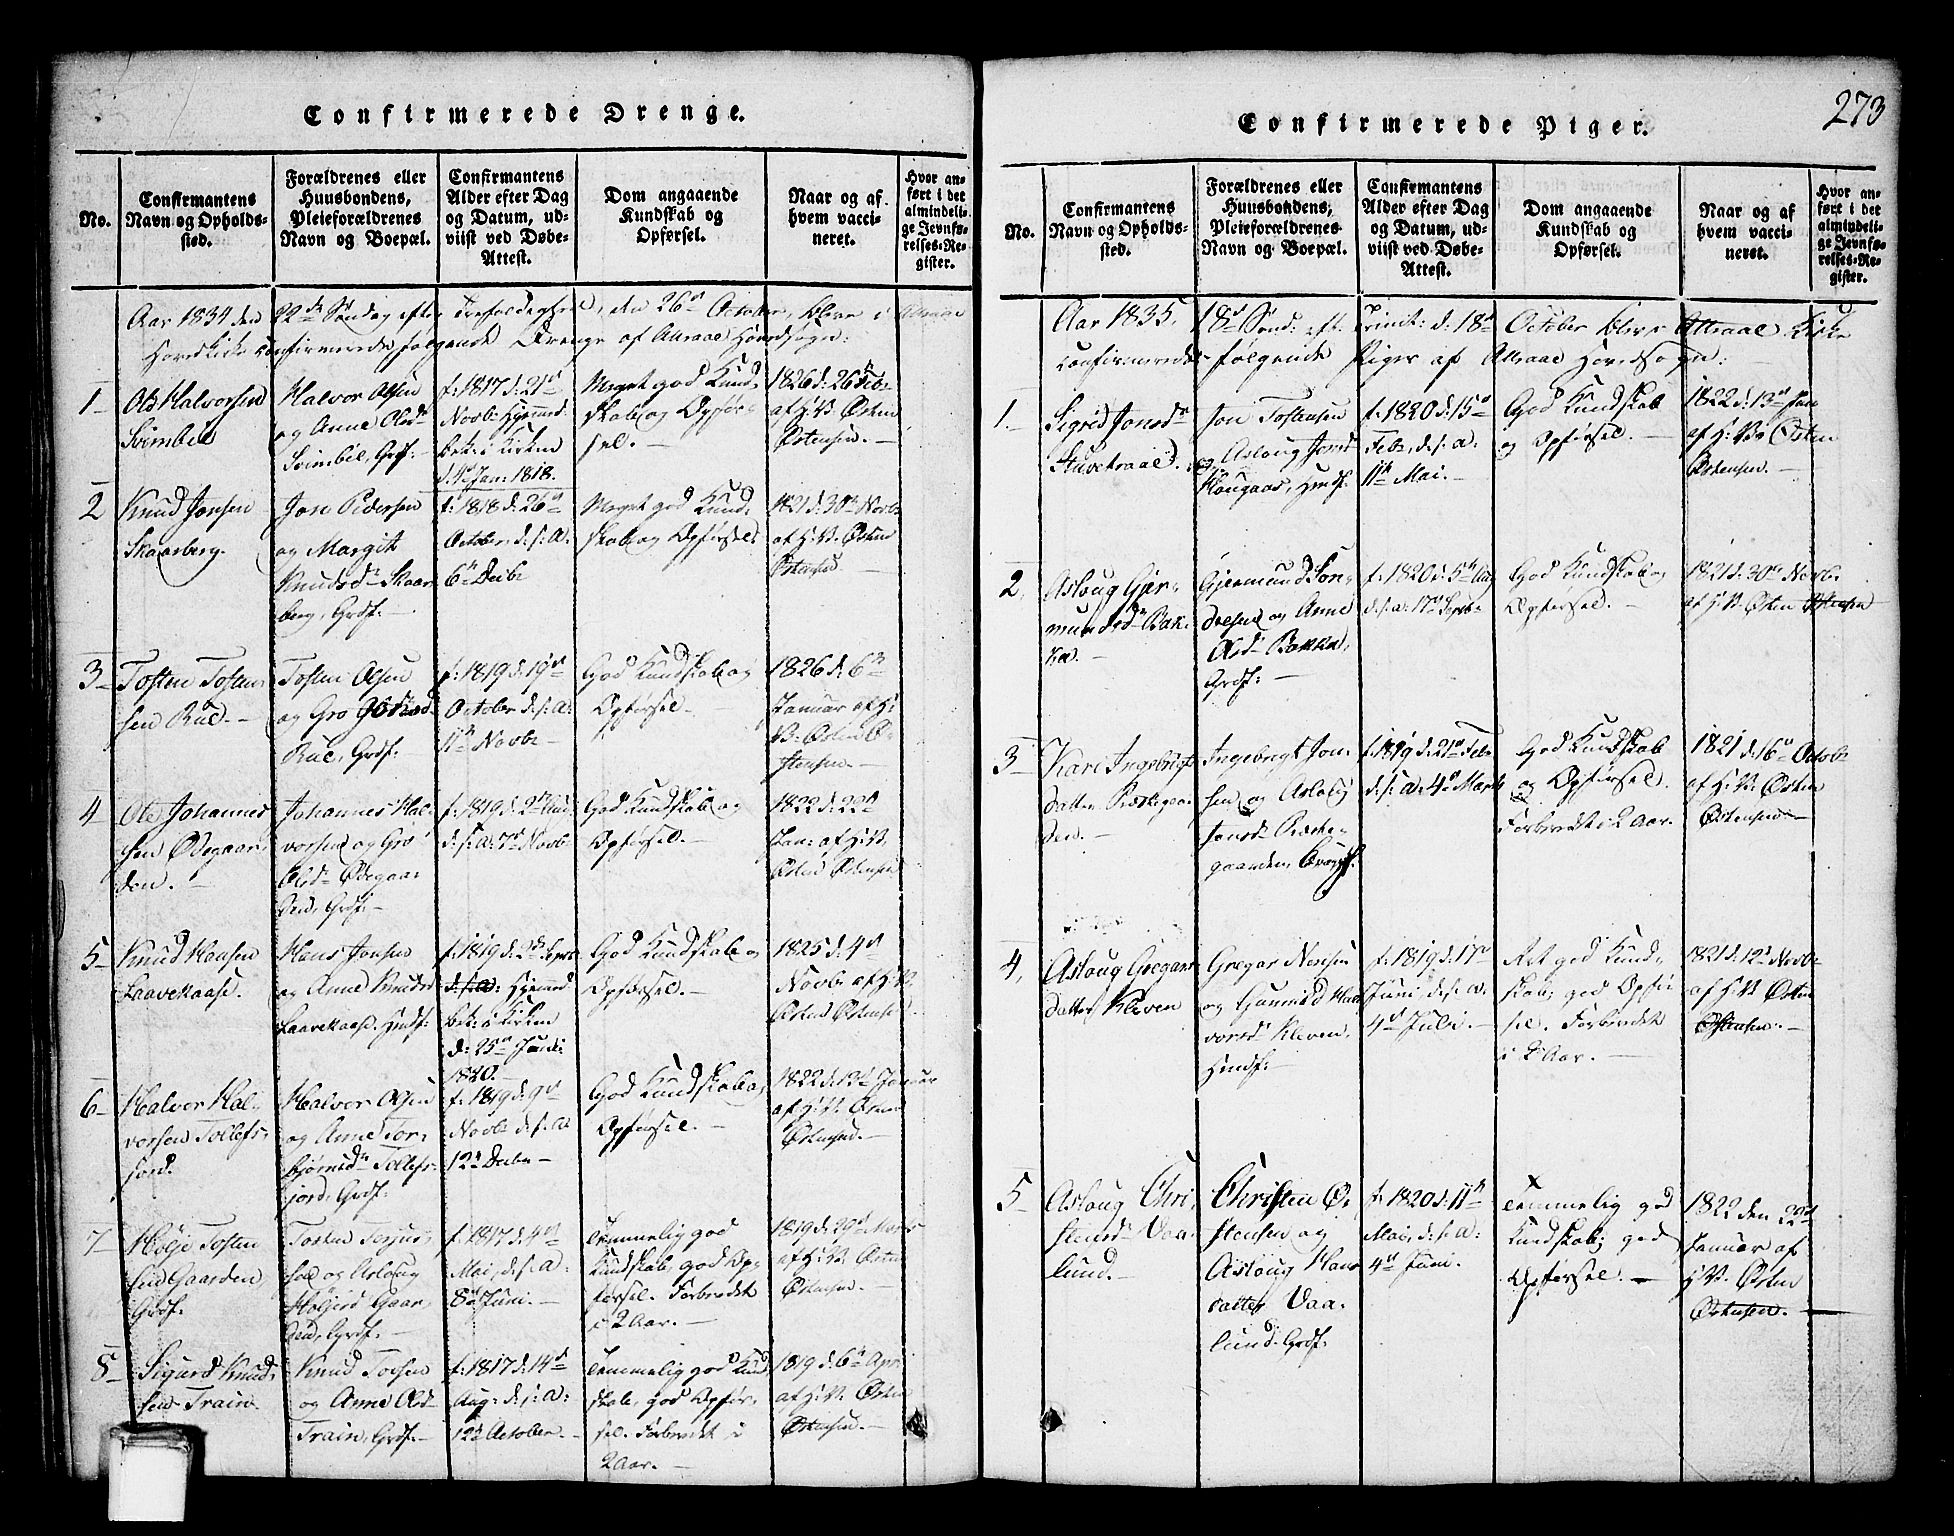 Confirmerede Drenge.
No.
Confirmantens
Navn og Opholds-
sted.
Forældrenes eller
Huusbondens,
Pleieforældrenes
Navn og Boepæl.
Confirmantens
Alder efter Dag
og Datum, ud-
viist ved Døbe-
Attest.
Dom angaaende
Kundskab og
Opførsel.
Naar og af
hvem vacci-
neret.
Hvor an-
ført i det
almindeli-
ge Jevnfø-
relses-Re-
gister.
Aar 1834 den 22de Søndag efter Trefoldighed, den 26de October, blive i Attraae
Hovedkirke confirmerede følgende Drenge af Attraae Hovedsogn:
1
Ole Halvorsen
Svimbil
Halvor Olsen
og Anne Olsdr
Svimbil, Grdf:
f: 1817 d: 21de
Novb: Hjemmed.
bek: i Kirken
d. 4de Jan: 1818.
Meget god Kund-
skab og Opfør-
sel. —
1826 d: 26 Feb:
af H: B: Østen
Østensen. —
2
Knud Jonsen
Skaarberg.
Jon Pedersen
og Margit
Knudsdr Skaar-
berg, Grdf: —
f: 1818 d: 26de
October, d: s: a:
6te Decbr
Meget god Kund-
skab og Opførsel.
1821 d: 30te Novbr
af H: B: Østen
Østensen. —
3
Tosten Tosten-
sen Rue. —
Tosten Olsen
og Gro
Rue, Grdf: —
f: 1819 d: 19de
October d: s: a:
11te Novbr
God Kundskab og
Opførsel. —
1826 d: 6te
Januar af H:
B: Østen Ø-
stensen. —
4
Ole Johannes-
sen Ødegaar-
den. —
Johannes Hal-
vorsen og Gro
Olsdr Ødegaar-
den, Grdf: —
f: 1819 d: 2den
d: s: a: 7de Novbr
God Kundskab og
Opførsel. —
1822 d: 22de
Jan: af H: B:
Østen Østensen
5
Knud Hansen
Laavekaase.
Hans Jonsen
og Anne Knudsd
Laavekaase. Hmdf:
f: 1819 d: 2de Septbr
d: s: a: Hjemmed
bek: i Kirken
d: 25de Juni:
1820. —
God Kundskab og
Opførsel. —
1825 d: 4de
Novbr af H: B:
Østen Østensen.
6
Halvor Hal-
vorsen Tollefs-
jord.
Halvor Olsen
og Anne Tor-
bjørnsdr Tollefs-
jord, Grdf: —
f: 1819 d: 9de
Novbr d: s: a
12te Decbr —
God Kundskab og
Opførsel. —
1822 d: 13de Januar
af H: B: Østen
Østensen. —
7
Høljе Tosten-
sen Gaarden,
Grdf.
Tosten Torjus-
sen og Aslaug
Høljesd Gaar-
den, Grdf: —
f: 1817 d: 4de
Mai, d: s: a:
8de Juni. —
Temmelig god
Kundskab, god Op-
førsel. Forberedet
i 2 Aar. —
1819 d: 29de
af H: B: Østen
Østensen. —
8
Sigurd Knud-
sen Train
Knud Tossen
og Anne Olsd
Train, Grdf: —
f: 1817 d: 14de
Aug: d: s: a:
12te October. —
Temmelig god Kund-
skab, god Opfør-
sel. Forberedet i
2 Aar. —
1819 d: 6te Apr:
af H: B: Østen
Østensen. —
273
Confirmerede Piger.
No.
Confirmantens
Navn og Opholds-
sted.
Forældrenes eller
Huusbondens,
Pleieforældrenes
Navn og Boepæl.
Confirmantens
Alder efter Dag
og Datum, ud-
viist ved Døbe-
Attest.
Dom angaaende
Kundskab og
Opførsel.
Naar og af
hvem vacci-
neret.
Hvor an-
ført i det
almindeli-
ge Jevnfø-
relses-Re-
gister.
Aar 1835, 18de Sønd: eft: Trinit: d: 18de October blive i Attraae Kirke
confirmerede følgende Piger af Attraae Hovedsogn:
1.
Sigrid Jonsdr
Stuvetraae.
Jon Tostensen
og Aslaug Jonsd
Haugaas, Hmdf:
f: 1820 d: 15de
Febr, d: s: a:
11te Mai. —
God Kundskab
og Opførsel. —
1822 d: 13de Jan
af H: B: Østen
Østensen. —
2.
Aslaug Gjer-
mundsdr Bak-
ken. —
Gjermund Son-
dresen og Anne
Olsdr Bakken,
Grdf: —
f: 1820 d: 5te
d: s: a: 17de Septbr
God Kundskab og
Opførsel. —
1821 d: 30te Novbr
af H: B: Østen Østensen
3
Kari Ingebrigts-
datter Præstegaar-
den. —
Ingebregt Jon-
sen og Aslaug
Jonsdr Præste-
gaarden,
f: 1819 d: 21de Febr
d: s: a: 4de Marts
God Kundskab
og Opførsel.
Forberedt i 2 Aar.
1821 d: 16de Octobr
af H: B: Østen
Østensen —
4,
Aslaug Gregars-
datter Kleven
Gregar
og Gunnild Hal-
vorsdr Kleven,
Hmdf: —
f: 1819 d: 17de
Juni, d: s: a:
4de Juli. —
Ret god Kund-
skab; god Opfør-
sel. Forberedet
i 2 Aar. —
1821 d: 12te Novbr
af H: B: Østen
Østensen. —
5
Aslaug Chri-
stensdr Vaa-
lund. —
Christen Ø-
stensen og
Aslaug Hans-
datter Vaa-
lund. Grdf.
f: 1820 d: 11te
Mai, d: s: a:
4de Juni.
Temmelig god
Kundskab; god
Opførsel. —
1822 den 22de
Januar af
H: B: Østen
Østensen.